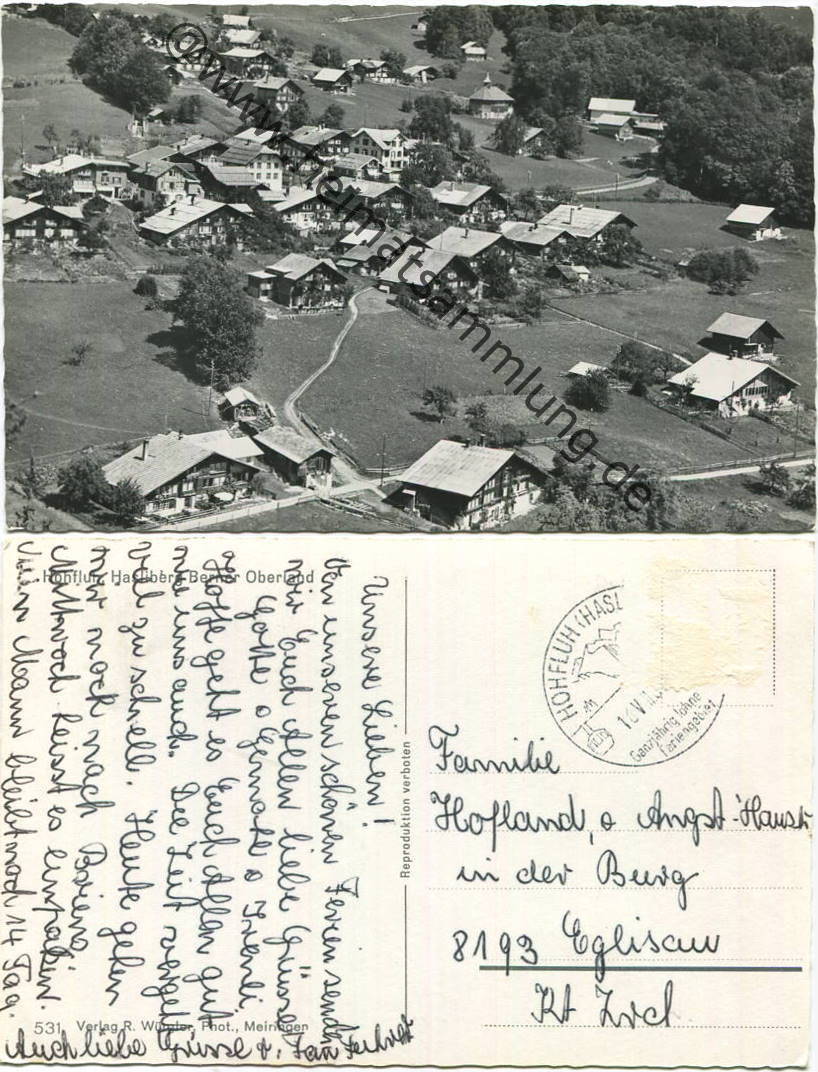 @www.heimatsammlung.de
Hohfluh, Hasliberg Berner Oberland
Unsere Lieben!
Von unseren schönen Ferien senden
wir Euch Allen liebe Grüsse
Gotte
Hoffe geht es Euch Allen gut
wie uns auch. Die Zeit vergeht
viel zu schnell. Heute gehen
wir noch nach Brienz
Mittwoch heisst es einpacken.
Mein Mann bleibt noch 14 Tag.
Auch liebe Grüsse v.
531 Verlag R. Würgler, Phot., Meiringen
Reproduktion verboten
HOHFLUH (HASL
Ganzjährig lohne
Feriengebiet
Familie
Hofland, Angst-Hauser
in der Burg
8193 Eglisau
Kt Zrch